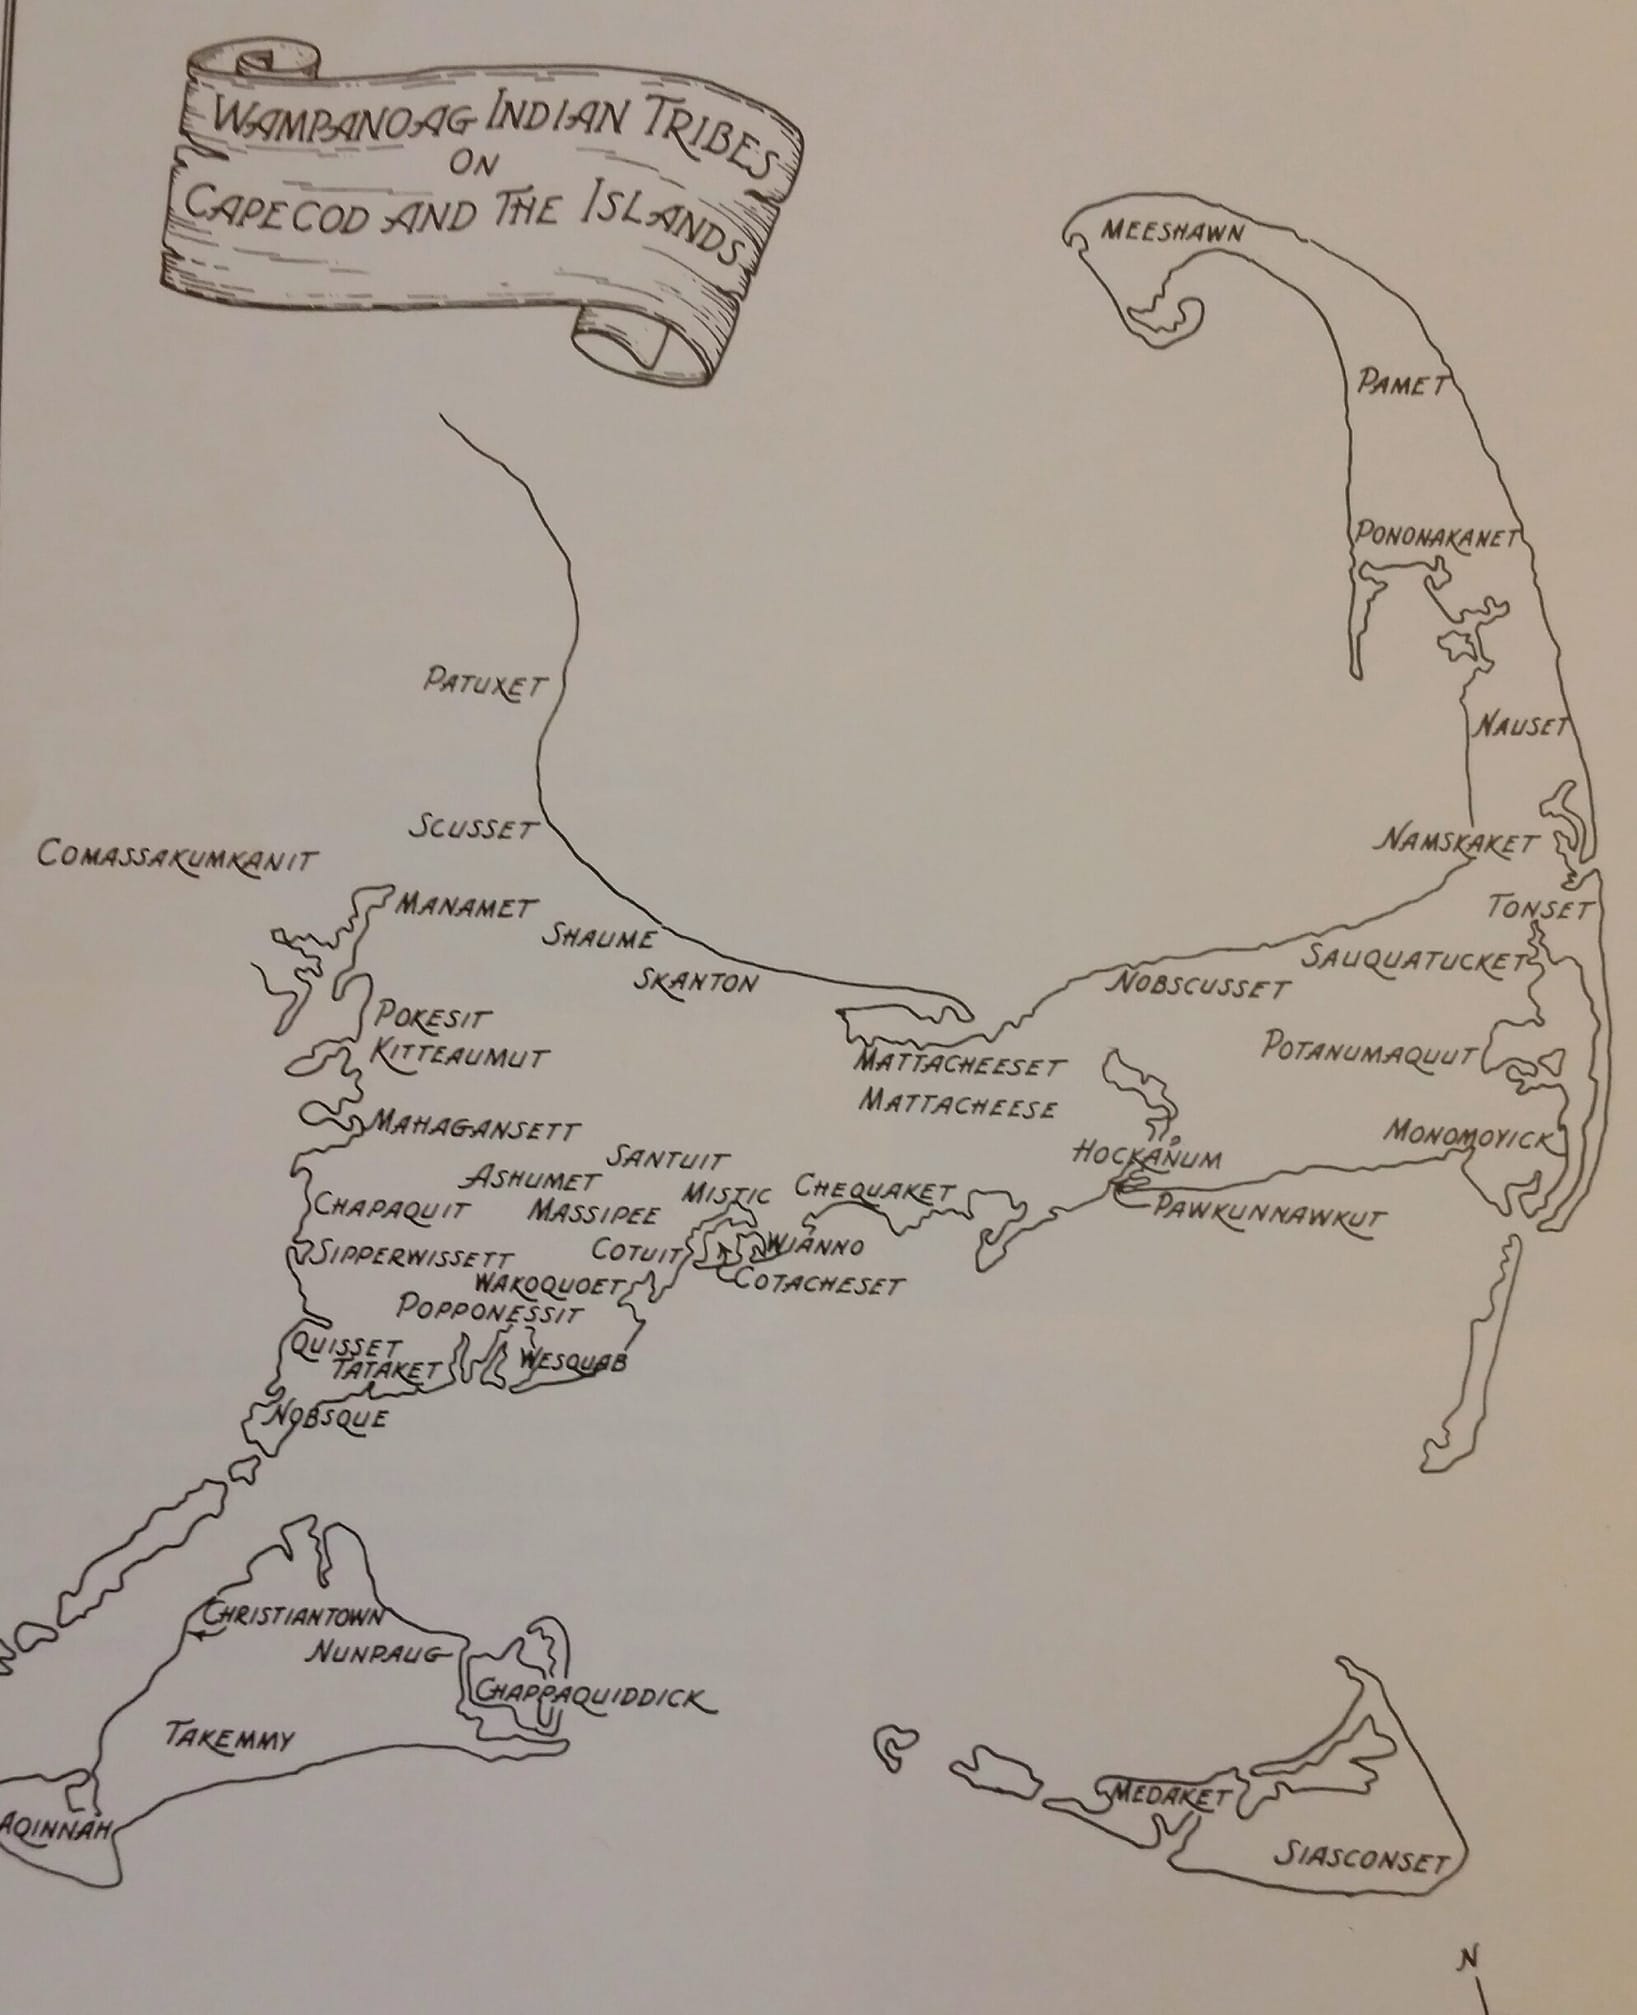 WAMPANOAG INDIAN TRIBES
ON
CAPE COD AND THE ISLANDS
MEESHAWN
PAMET
PONONAKANET
PATUXET
NAUSET
SCUSSET
NAMSKAKET
COMASSAKUMKANIT
MANAMET
TONSET
SHAUME
SAUQUATUCKET
SKANTON
NOBSCUSSET
POKESIT
KITTEAUMUT
POTANUMAQUUT
MATTACHEESET
MATTACHEESE
MAHAGANSETT
MONOMOYICK
SANTUIT
HOCKANUM
ASHUMET
MISTIC
CHEQUAKET
CHAPAQUIT
MASSIPEE
PAWKUNNAWKUT
SIPPERWISSETT
COTUIT
WIANNO
WAKOQUOET
COTACHESET
POPPONESSIT
QUISSET
TATAKET
WESQUAB
NOBSQUE
CHRISTIANTOWN
NUNPAUG
CHAPPAQUIDDICK
TAKEMMY
MEDAKET
AQINNAH
SIASCONSET
N